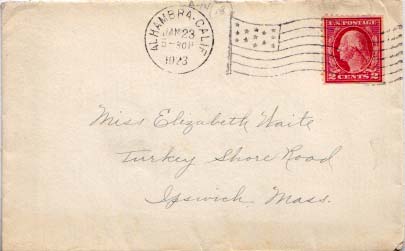 ALHAMBRA, CALIF.
JAN 23
1923
U.S. POSTAGE
2 CENTS 2
Miss Elizabeth Waite
Turkey Shore Road
Ipswich, Mass.